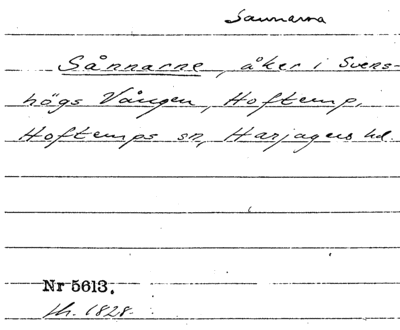 Sannarna
Sånnarne, åker i Svens-
högs Vången, Hoftemp,
Hoftemps sn, Harjagers hd.
Nr 5613.
th. 1828.